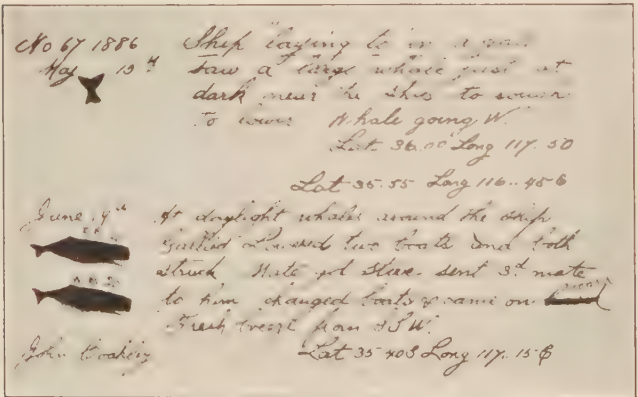 No 67 1886 Ship laying to in a
May 13th Saw a large whale just at
dark near the ship to
to lower Whale going W.
Lat 36.00 Long 117.50
Lat 35.55 Long 116..45 E
June 9th At daylight whales around the ship
gallied Lowered two boats and both
struck Mate got stove sent 3d mate
to him changed boats & came on
Fresh breeze from SSW.
John Lat 35 40S Long 117.15 E